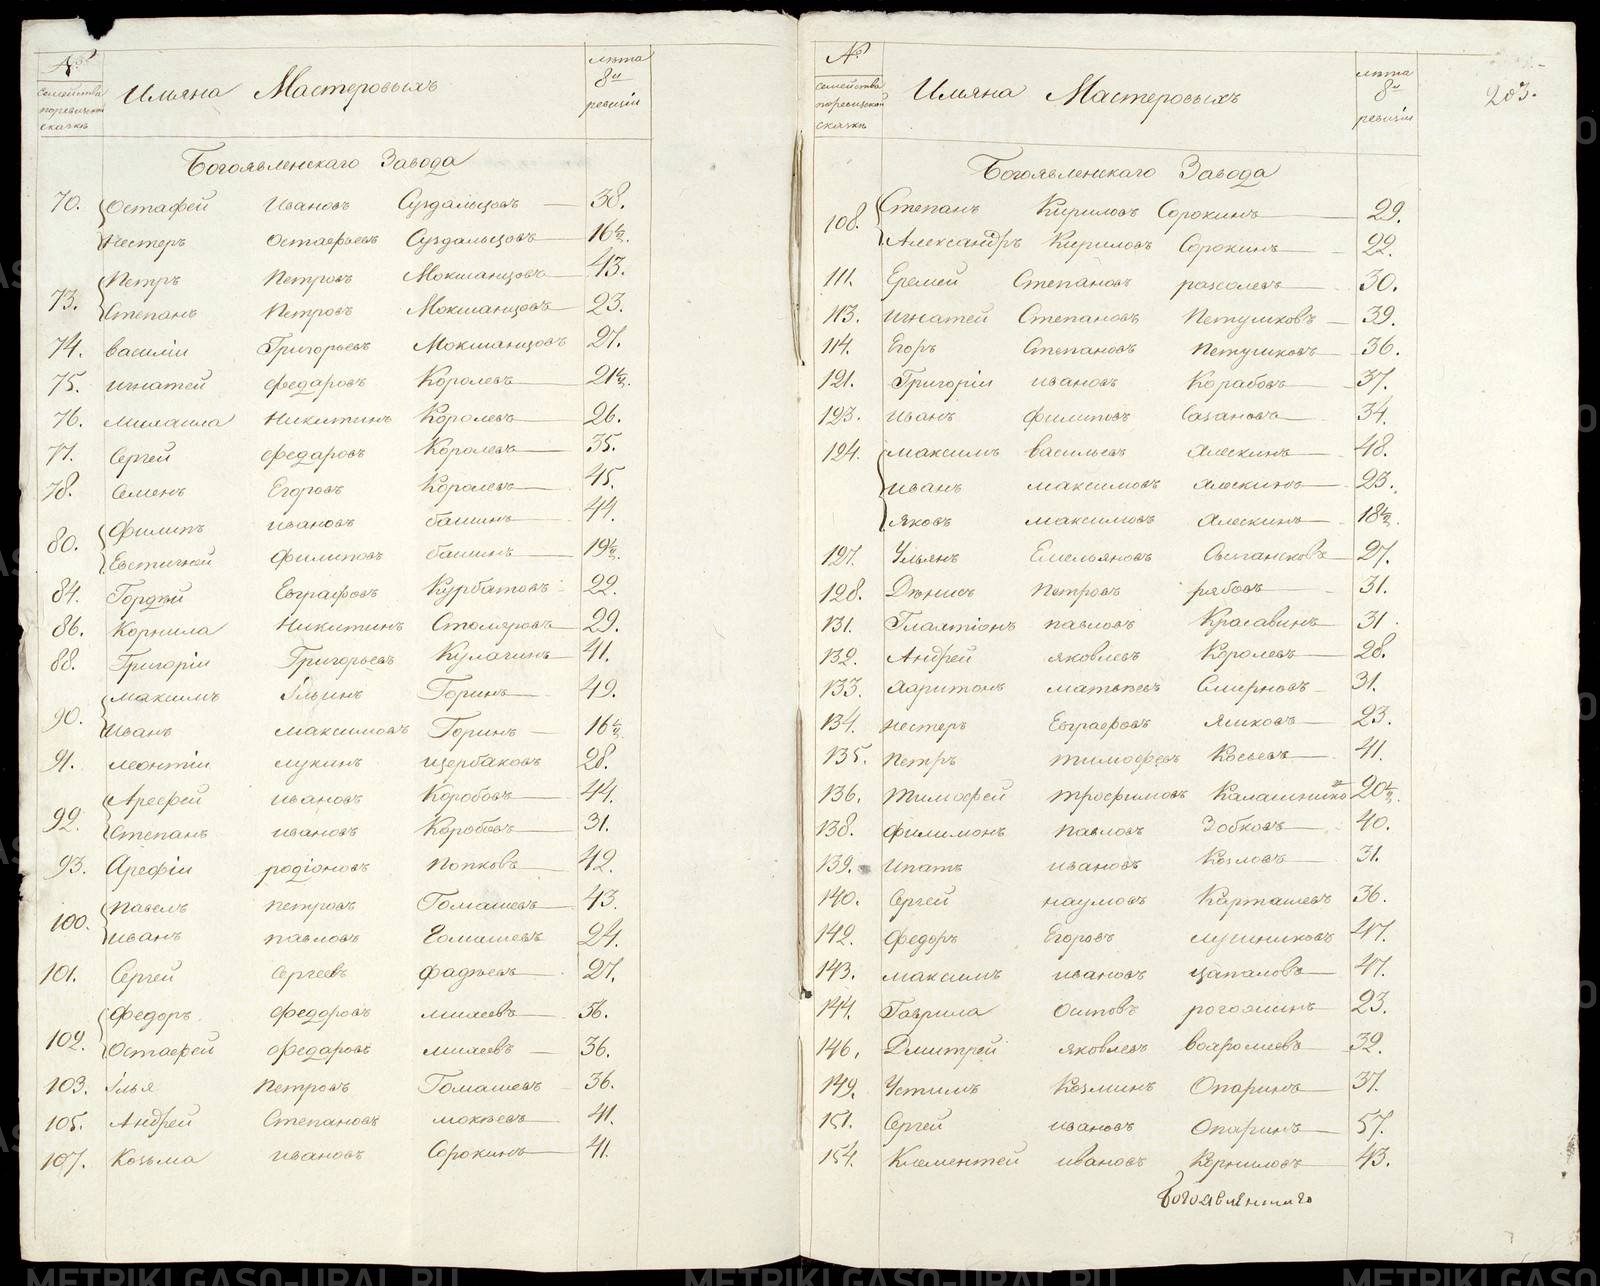 №
семейства
по ревизской
сказкѣ
Имяна Мастеровыхъ
лѣта
8й
ревизiи
Богоявленскаго Завода
70. Остафей Ивановъ Суздальцовъ — 38.
Нестеръ Остафьевъ Суздальцовъ — 16½.
73. Петръ Петровъ Мокшанцовъ — 43.
Степанъ Петровъ Мокшанцовъ — 23.
74. Василiи Григорьевъ Мокшанцовъ 27.
75. Игнатей Федаровъ Королевъ — 21½.
76. Михаила Никитинъ Королевъ — 26.
77. Сергей Федаровъ Королевъ — 35.
78. Семенъ Егоровъ Королевъ — 45.
80. Филипъ Ивановъ башинъ — 44.
Евстигней Филиповъ башинъ — 19½.
84. Гордѣй Евграфовъ Курбатовъ — 22.
86. Корнила Никитинъ Столяровъ — 29.
88. Григорiи Григорьевъ Кулагинъ — 41.
90. Максимъ Iльинъ Горинъ — 49.
Иванъ Максимовъ Горинъ — 16½.
91. Леонтiи Лукинъ Щербаковъ 28.
92. Арефей Ивановъ Коробовъ — 44.
Степанъ Ивановъ Коробовъ — 31.
93. Арефiи Родiоновъ Попковъ — 42.
100. Павелъ Петровъ Гомашевъ — 43.
Иванъ Павловъ Гомашевъ 24.
101. Сергей Сергеевъ Фадѣевъ — 27.
102. Федоръ Федоровъ Михеевъ — 56.
Остафей Федаровъ Михеевъ — 36.
103. Iлья Петровъ Гомашевъ — 36.
105. Андрей Степановъ Мокѣевъ — 41.
107. Козьма Ивановъ Сорокинъ — 41.
№
семейства
по ревизской
сказкѣ
Имяна Мастеровыхъ
лѣта
8й
ревизiи
203.
Богоявленскаго Завода
108. Степанъ Кириловъ Сорокинъ — 29.
Александръ Кириловъ Сорокинъ — 22.
111. Еремей Степановъ 30.
113. Игнатей Степановъ Петушковъ — 39.
114. Егоръ Степановъ Петушковъ — 36.
121. Григорiи Ивановъ Корабовъ — 37.
123. Иванъ Филиповъ Сазановъ — 34.
124. Максимъ Васильевъ Алескинъ — 48.
Иванъ Максимовъ Алескинъ — 23.
Яковъ Максимовъ Алескинъ — 18½.
127. Ульянъ Емельяновъ 27.
128. Дѣнисъ Петровъ Рябовъ — 31.
131. Павловъ Красавинъ — 31.
132. Андрей Яковлевъ Королевъ — 28.
133. Харитонъ Матвѣевъ Смирновъ — 31.
134. Нестеръ Евграфовъ Ямковъ — 23.
135. Петръ Тимофѣевъ Косевъ — 41.
136. Тимофей Трофимовъ Калашников 20½.
138. Филимонъ Павловъ Зобковъ — 40.
139. Ипатъ Ивановъ Козловъ — 31.
140. Сергей Наумовъ Карташевъ 36.
142. Федоръ Егоровъ Лушниковъ 47.
143. Максимъ Ивановъ Цапаловъ — 47.
144. Гаврила Осиповъ Рогожинъ — 23.
146. Дмитрей Яковлевъ 32.
149. Устимъ Козминъ Опаринъ — 37.
151. Сергей Ивановъ Опаринъ — 57.
154. Клементей Ивановъ Корниловъ — 43.
Богоявленскаго
METRIKI.GASO-URAL.RU